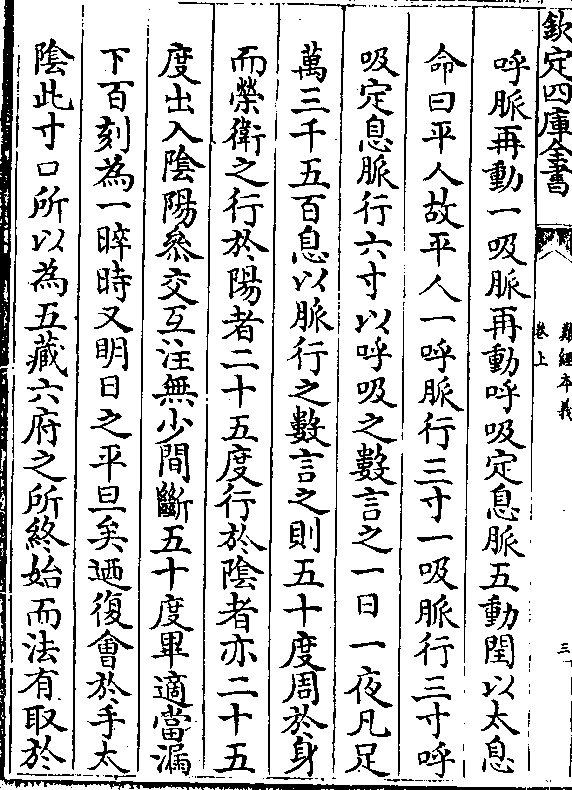 欽定四庫全書
難經本義
卷上
三
呼脈再動一吸脈再動呼吸定息脈五動閏以太息
命曰平人故平人一呼脈行三寸一吸脈行三寸呼
吸定息脈行六寸以呼吸之數言之一日一夜凡足
萬三千五百息以脈行之數言之則五十度周於身
而榮衛之行於陽者二十五度行於陰者亦二十五
度出入陰陽叅交互注無少間斷五十度畢適當漏
下百刻為一晬時又明日之平旦矣迺復會於手太
陰此寸口所以為五藏六府之所終始而法有取於